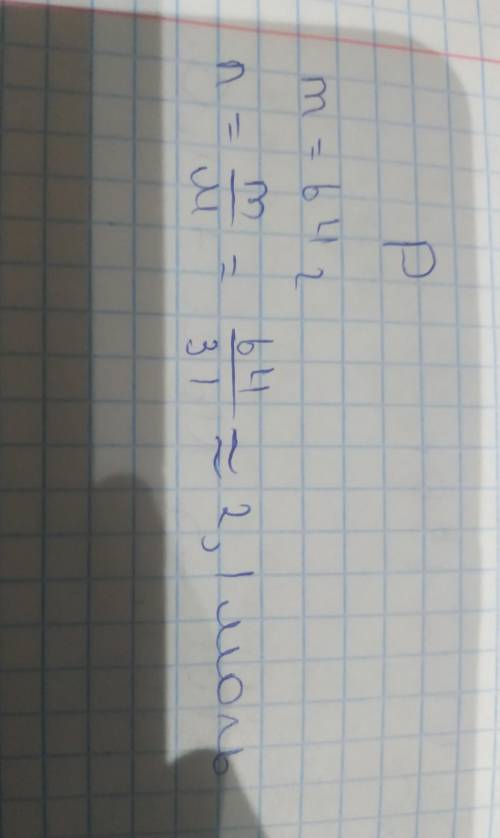 P
m = 64 г
n = m/M = 64/31 ≈ 2,1 моль